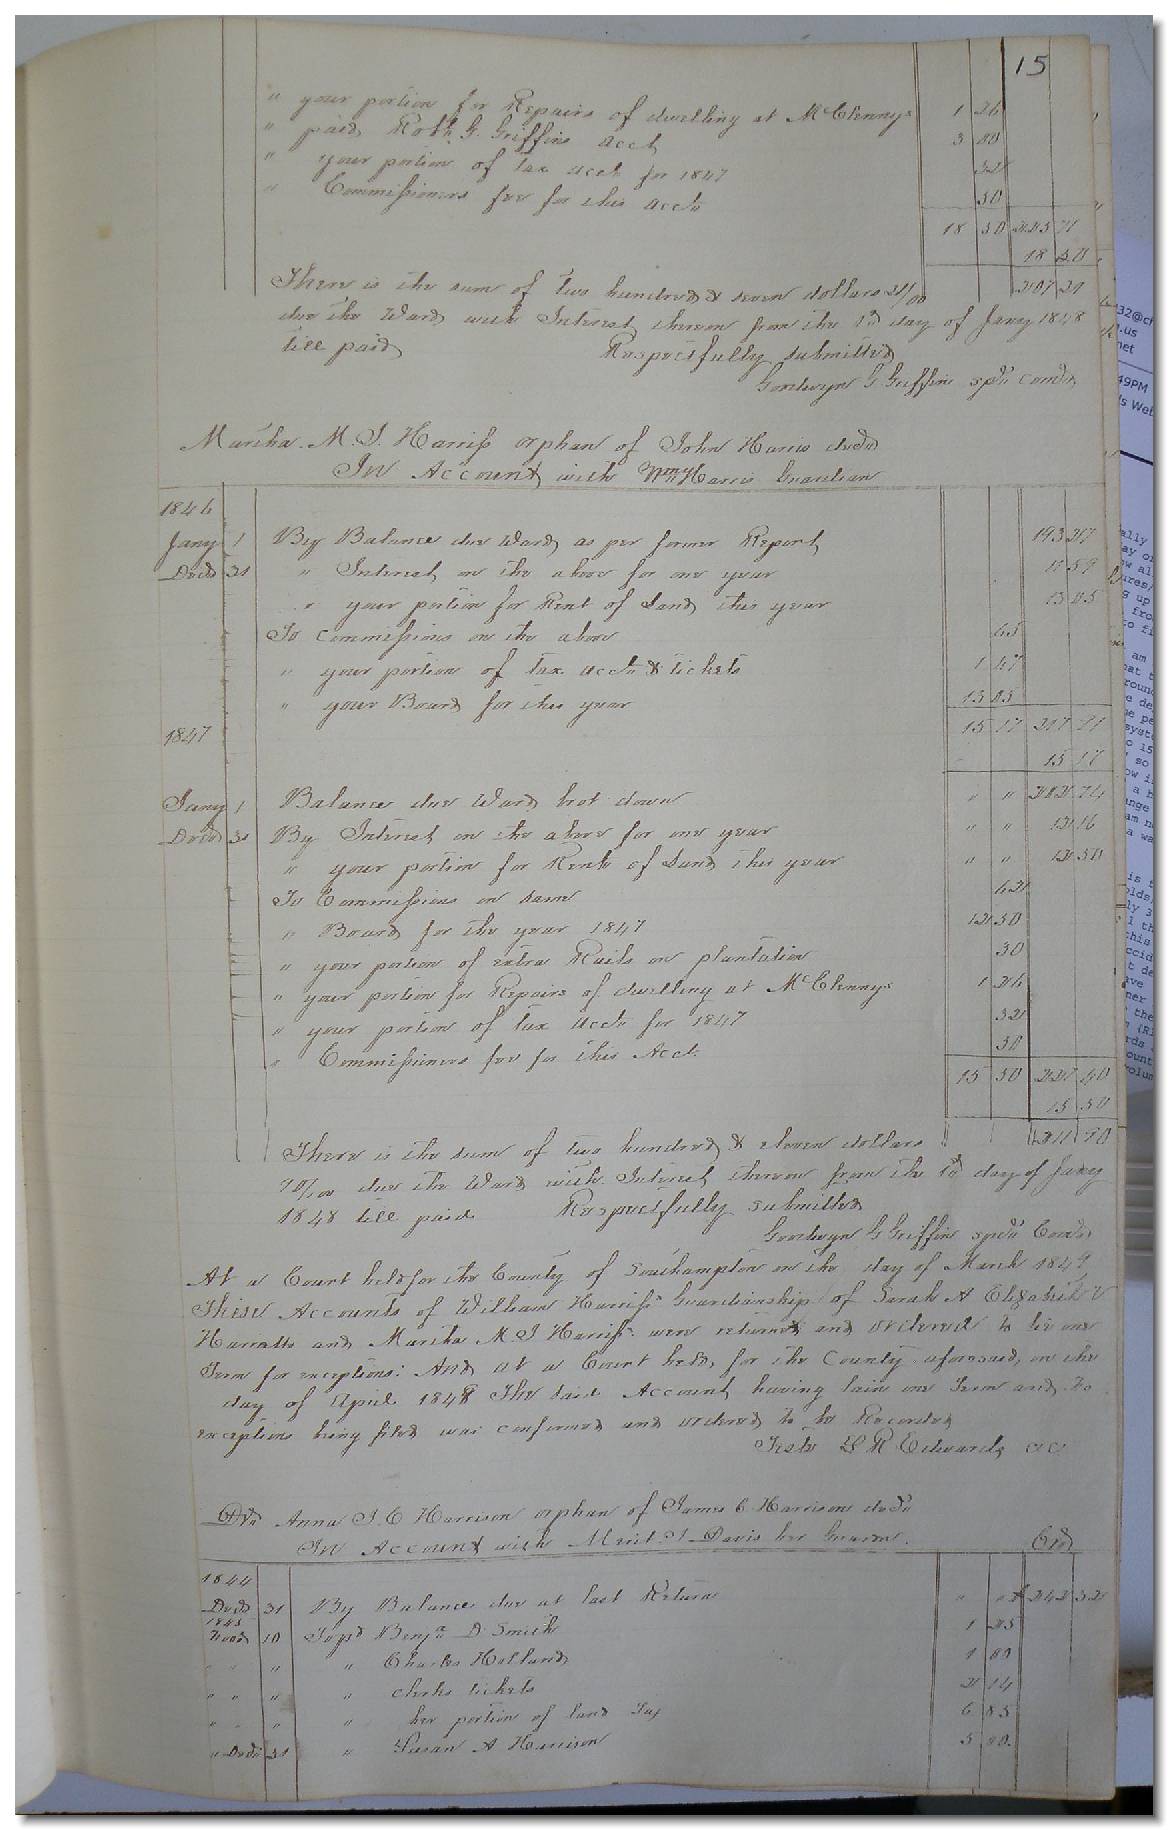 15
" your portion for Repairs of dwelling at McClennys 1 26
" paid Robt. G. Griffins acct 3 00
" your portion of tax acct for 1847 32
" Commissioners fee for this accts 50
18 50 225 71
18 50
207 21
There is the sum of two hundred & seven dollars 21/00
due the Ward with Interest thereon from the 1st day of Jany 1848
till paid Respectfully submitted
Goodwyn G Griffin spcl. comdr.
Martha M. J. Harriss orphan of John Harris decd
In Account with Wm Harris Guardian
1846
Jany 1 By Balance due Ward as per former Report 193 27
Decb 31 " Interest on the above for one year 11 59
" your portion for Rent of Land this year 13 05
To Commissions on the above 65
" your portion of tax accts & tickets 1 47
" your Board for this year 13 05
1847 15 17 217 91
15 17
Jany 1 Balance due Ward brot down " " 202 74
Decb 31 By Interest on the above for one year " " 12 16
" your portion for Rents of Land this year " " 12 50
To Commissions on same 62
" Board for the year 1847 12 50
" your portion of extra Rails on plantation 30
" your portion for Repairs of dwelling at McClennys 1 26
" your portion of tax accts for 1847 32
" Commissioners fee for this Acct. 50
15 50 227 40
15 50
211 90
There is the sum of two hundred & eleven dollars
90/00 due the Ward with Interest thereon from the 1st day of Jany
1848 till paid Respectfully submitted
Goodwyn G Griffin spcl. Comdr.
At a Court held for the County of Southampton on the day of March 1849
These Accounts of William Harriss Guardianship of Sarah A Elizabeth V
Harratts and Martha M J Harriss were returned and ordered to lie one
Term for exceptions: And at a Court held, for the County aforesaid, on the
day of April 1848 The said Account having lain one Term and no
exceptions being filed was confirmed and ordered to be Recorded
Teste L R Edwards CC
Dr. Anna J. C Harrison orphan of James C. Harrison decd
In Account with J. Davis her Guardn. Cr.
1844
Decb 31 By Balance due at last Return " " 242 32
1845
10 To pd Benjn. D. Smith 1 25
" " " " Charles Holland 1 00
" " " " clerks tickets 2 14
" " " " her portion of land Tax 6 85
" Decb 31 " Susan A Harrison 5 00